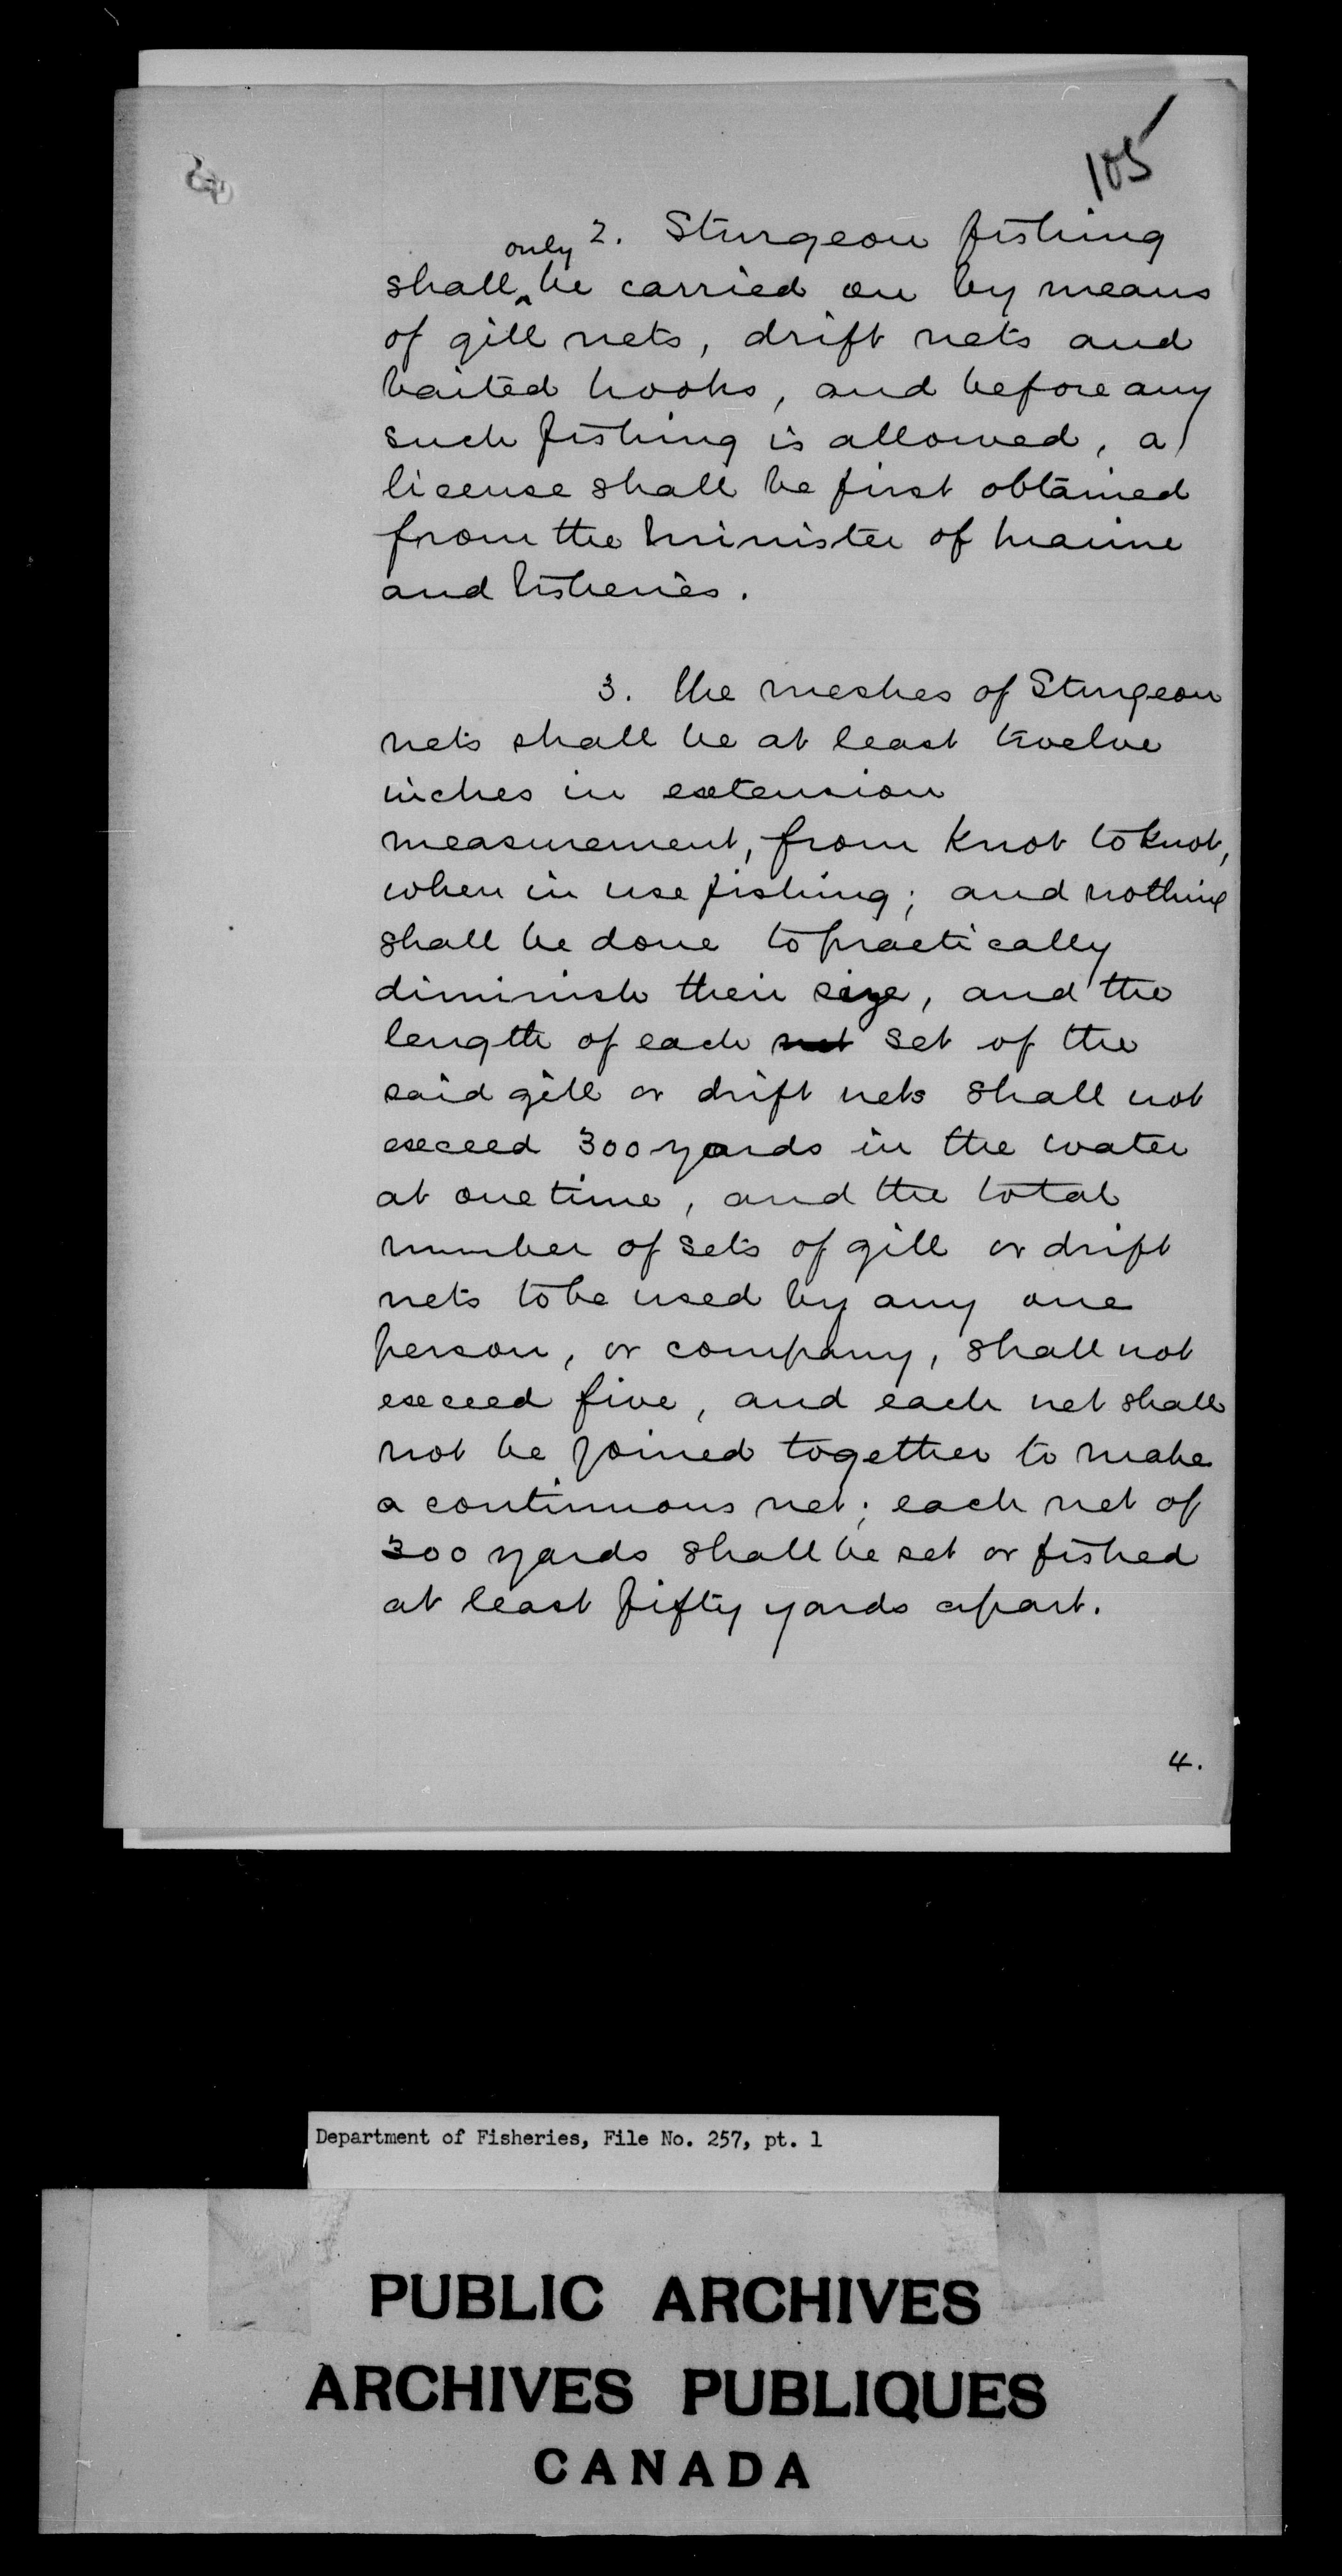 105
2. Sturgeon fishing
only
shall be carried on by means
of gill nets, drift nets and
baited hooks, and before any
such fishing is allowed, a
license shall be first obtained
from the Minister of Marine
and Fisheries.
3. The meshes of Sturgeon
nets shall be at least twelve
inches in extension
measurement, from knot to knot,
when in use fishing; and nothing
shall be done to practically
diminish their size, and the
length of each net set of the
said gill or drift nets shall not
exceed 300 yards in the water
at one time, and the total
number of sets of gill or drift
nets to be used by any one
person, or company, shall not
exceed five, and each net shall
not be joined together to make
a continuous net; each net of
300 yards shall be set or fished
at least fifty yards apart.
4.
Department of Fisheries, File No. 257, pt. 1
PUBLIC ARCHIVES
ARCHIVES PUBLIQUES
CANADA